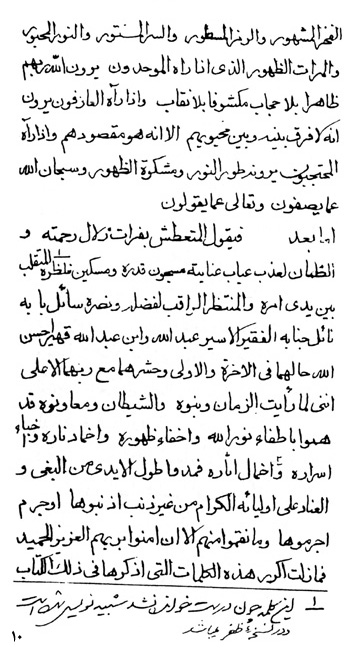 الفخر المشهور والرمز المسطور والسر المستور والنور المحبور
والمرات الظهور الذى اذا راه الموحدون يرون الله ربهم
ظاهرا بلا حجاب مكشوفا بلا نقاب واذا رآه العارفون يرون
انه لا فرق بينه وبين محبوبهم الا انه هو مقصودهم واذا رآه
المحتجبون يرونه طور النور ومشكوة الظهور وسبحان الله
عما يصفون وتعالى عما يقولون
اما بعد فيقول المتعطش بفرات زلال رحمته و
الظمان لعذب عباب عنايته مسجون قدره ومسكين نلظره المتقلب
بين يدى امره والمنتظر الراقب لفضله ونصره سائل بابه
نائل جنابه الفقير الاسير عبد الله وابن عبد الله قهير احسن
الله حالهما فى الآخرة والاولى وحشرهما مع ربهما الاعلى
اننى لما رأيت الزمان وبنوه والشيطان ومعاونوه قد
هموا باطفاء نور الله واخفاء ظهوره واخماد ناره واخباء
اسراره واخمال آثاره فمدوا طول الايدى من البغى و
العناد على اوليائه الكرام من غير ذنب اذنبوها او جرم
اجرموها وما نقموا منهم الا ان امنوا بربهم العزيز الحميد
فمازلت اكور هذه الكلمات التى اذكرها فى ذلك الكتاب
١ اين كلمه چون درست خوانده نشد شبيه نويسى شده است
ودر نسخه ظفر ميباشد
١٠